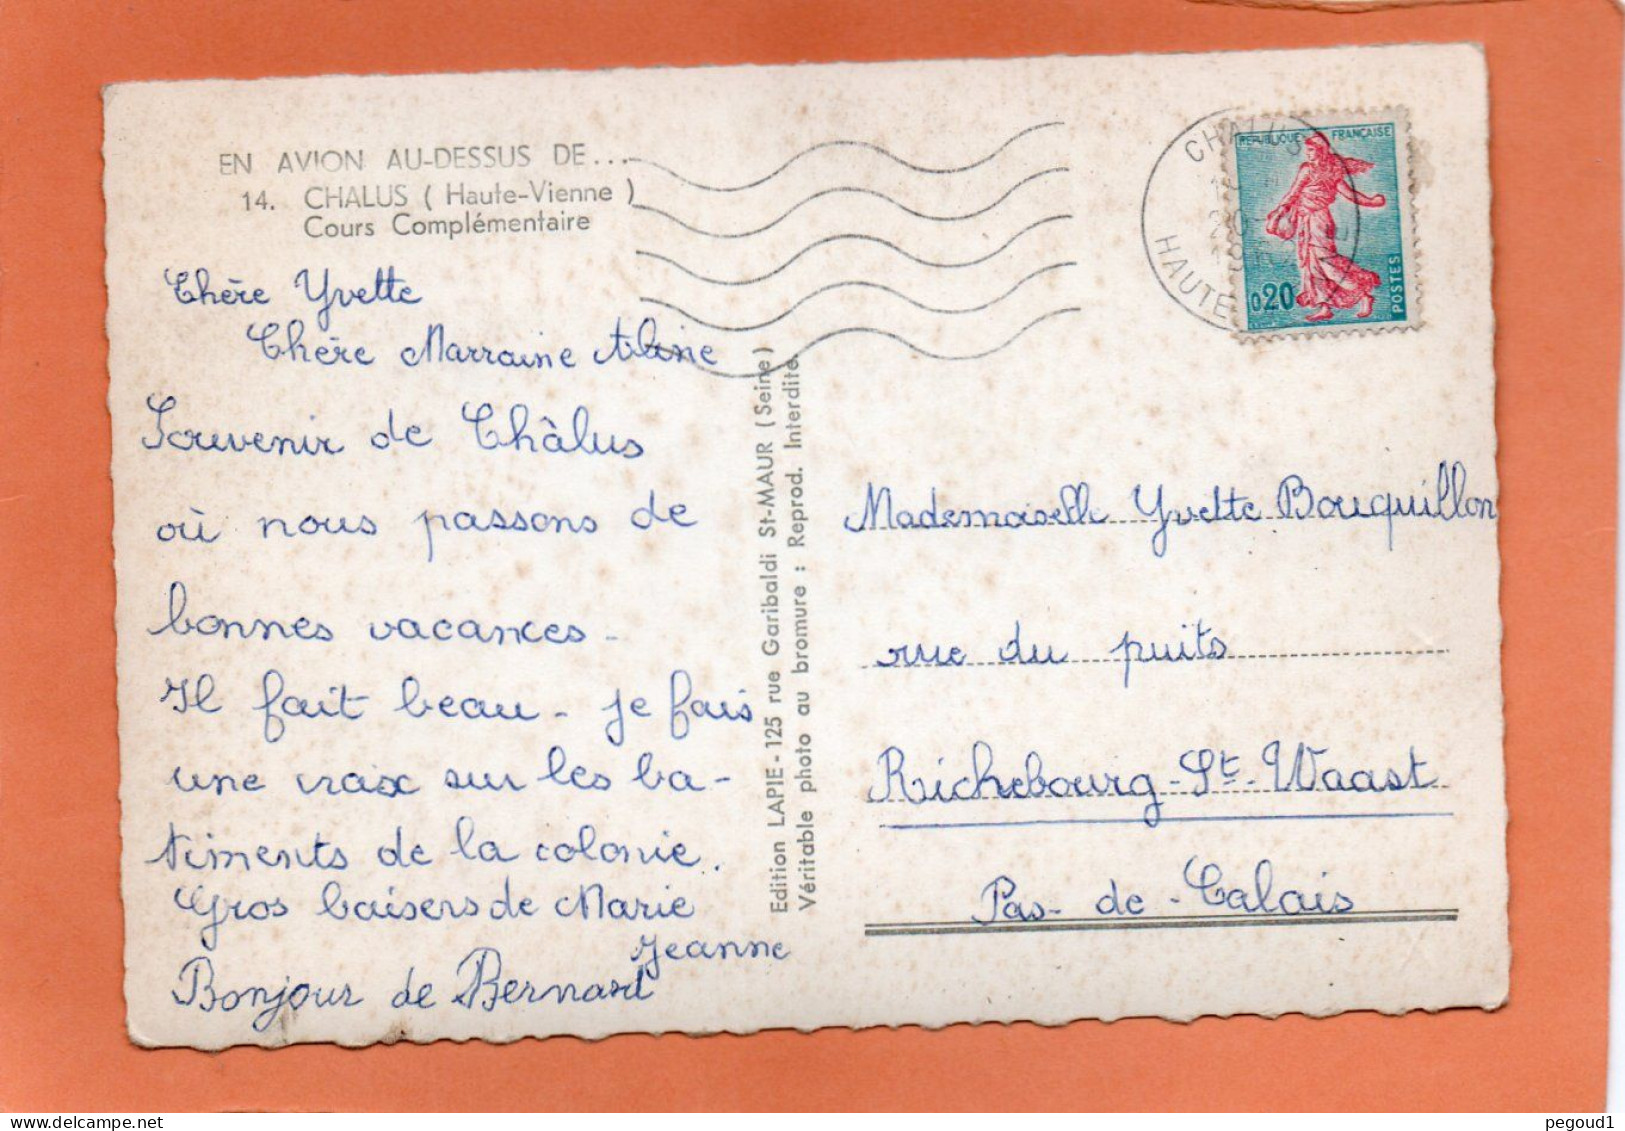 EN AVION AU-DESSUS DE...
14. CHALUS ( Haute-Vienne )
Cours Complémentaire
Chère Yvette
Chère Marraine Aline
Souvenir de Châlus
où nous passons de
bonnes vacances -
Il fait beau - je fais
une croix sur les ba-
timents de la colonie.
Gros baisers de Marie
Jeanne
Bonjour de Bernard
Edition LAPIE - 125 rue Garibaldi St-MAUR (Seine)
Véritable photo au bromure : Reprod. Interdite
CHALUS
HAUTE
REPUBLIQUE FRANÇAISE
0,20
POSTES
Mademoiselle Yvette Bouquillon
rue du puits
Richebourg-St-Waast
Pas-de-Calais
pegoud1